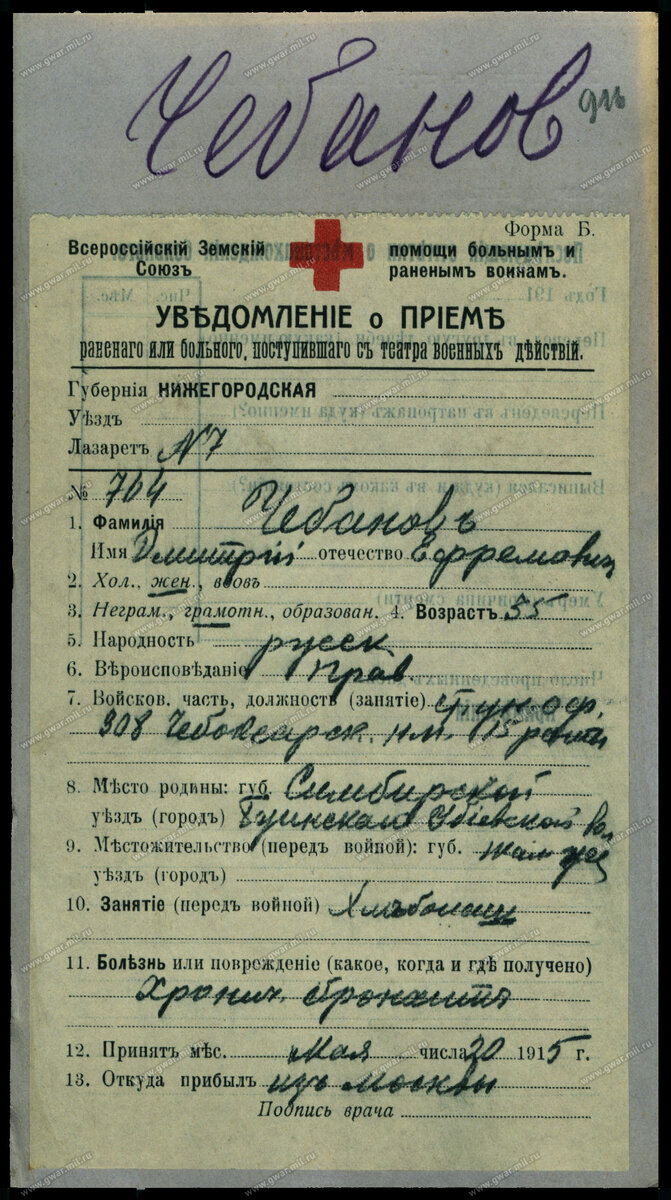 Чебанов
Форма Б.
Всероссійскій Земскій Союзъ помощи больнымъ и раненымъ воинамъ.
УВѢДОМЛЕНІЕ о ПРІЕМѢ
раненаго или больного, поступившаго съ театра военныхъ дѣйствій.
Губернія НИЖЕГОРОДСКАЯ
Уѣздъ
Лазаретъ N 7
№ 764
1. Фамилія Чебановъ
Имя Дмитрій отечество Ефремовичъ
2. Хол., жен., вдовъ
3. Неграм., грамотн., образован. 4. Возрастъ 35
5. Народность русск
6. Вѣроисповѣданіе Прав.
7. Войсков. часть, должность (занятіе) ст. ун. оф.
308 Чебоксарск. п. 15 роты
8. Мѣсто родины: губ. Симбирской
уѣздъ (городъ) Буинскаго Убеевской Вол
9. Мѣстожительство (передъ войной): губ. тамъ же
уѣздъ (городъ)
10. Занятіе (передъ войной) Хлѣбопаш
11. Болѣзнь или поврежденіе (какое, когда и гдѣ получено)
Хронич. бронхитъ
12. Принятъ мѣс. Мая числа 20 1915 г.
13. Откуда прибылъ изъ Москвы
Подпись врача
www.gwar.mil.ru